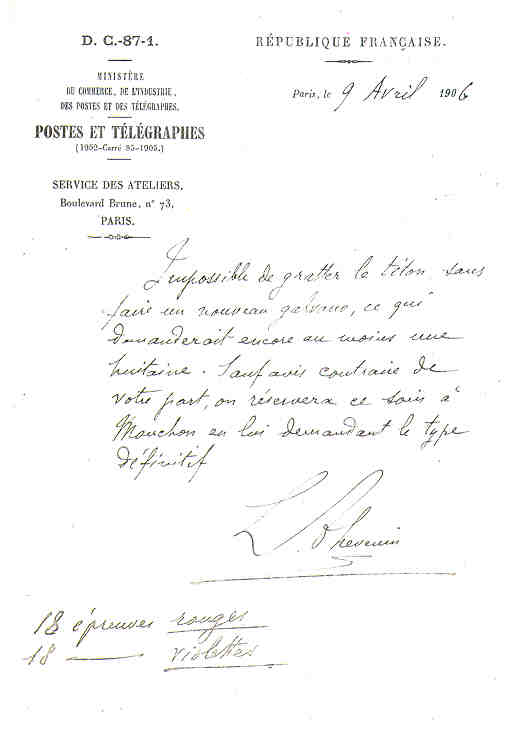 D. C.-87-1.
MINISTÈRE
DU COMMERCE, DE L'INDUSTRIE,
DES POSTES ET DES TÉLÉGRAPHES.
POSTES ET TÉLÉGRAPHES
(1052-Carré 85-1905.)
SERVICE DES ATELIERS,
Boulevard Brune, n° 73,
PARIS.
RÉPUBLIQUE FRANÇAISE.
Paris, le 9 Avril 1906
Impossible de gratter le téton sans
faire un nouveau galvano, ce qui
demanderait encore au moins une
huitaine. Sauf avis contraire de
votre part, on réservera ce soin à
Mouchon en lui demandant le type
définitif
L Thevenin
18 épreuves rouges
18 — violettes